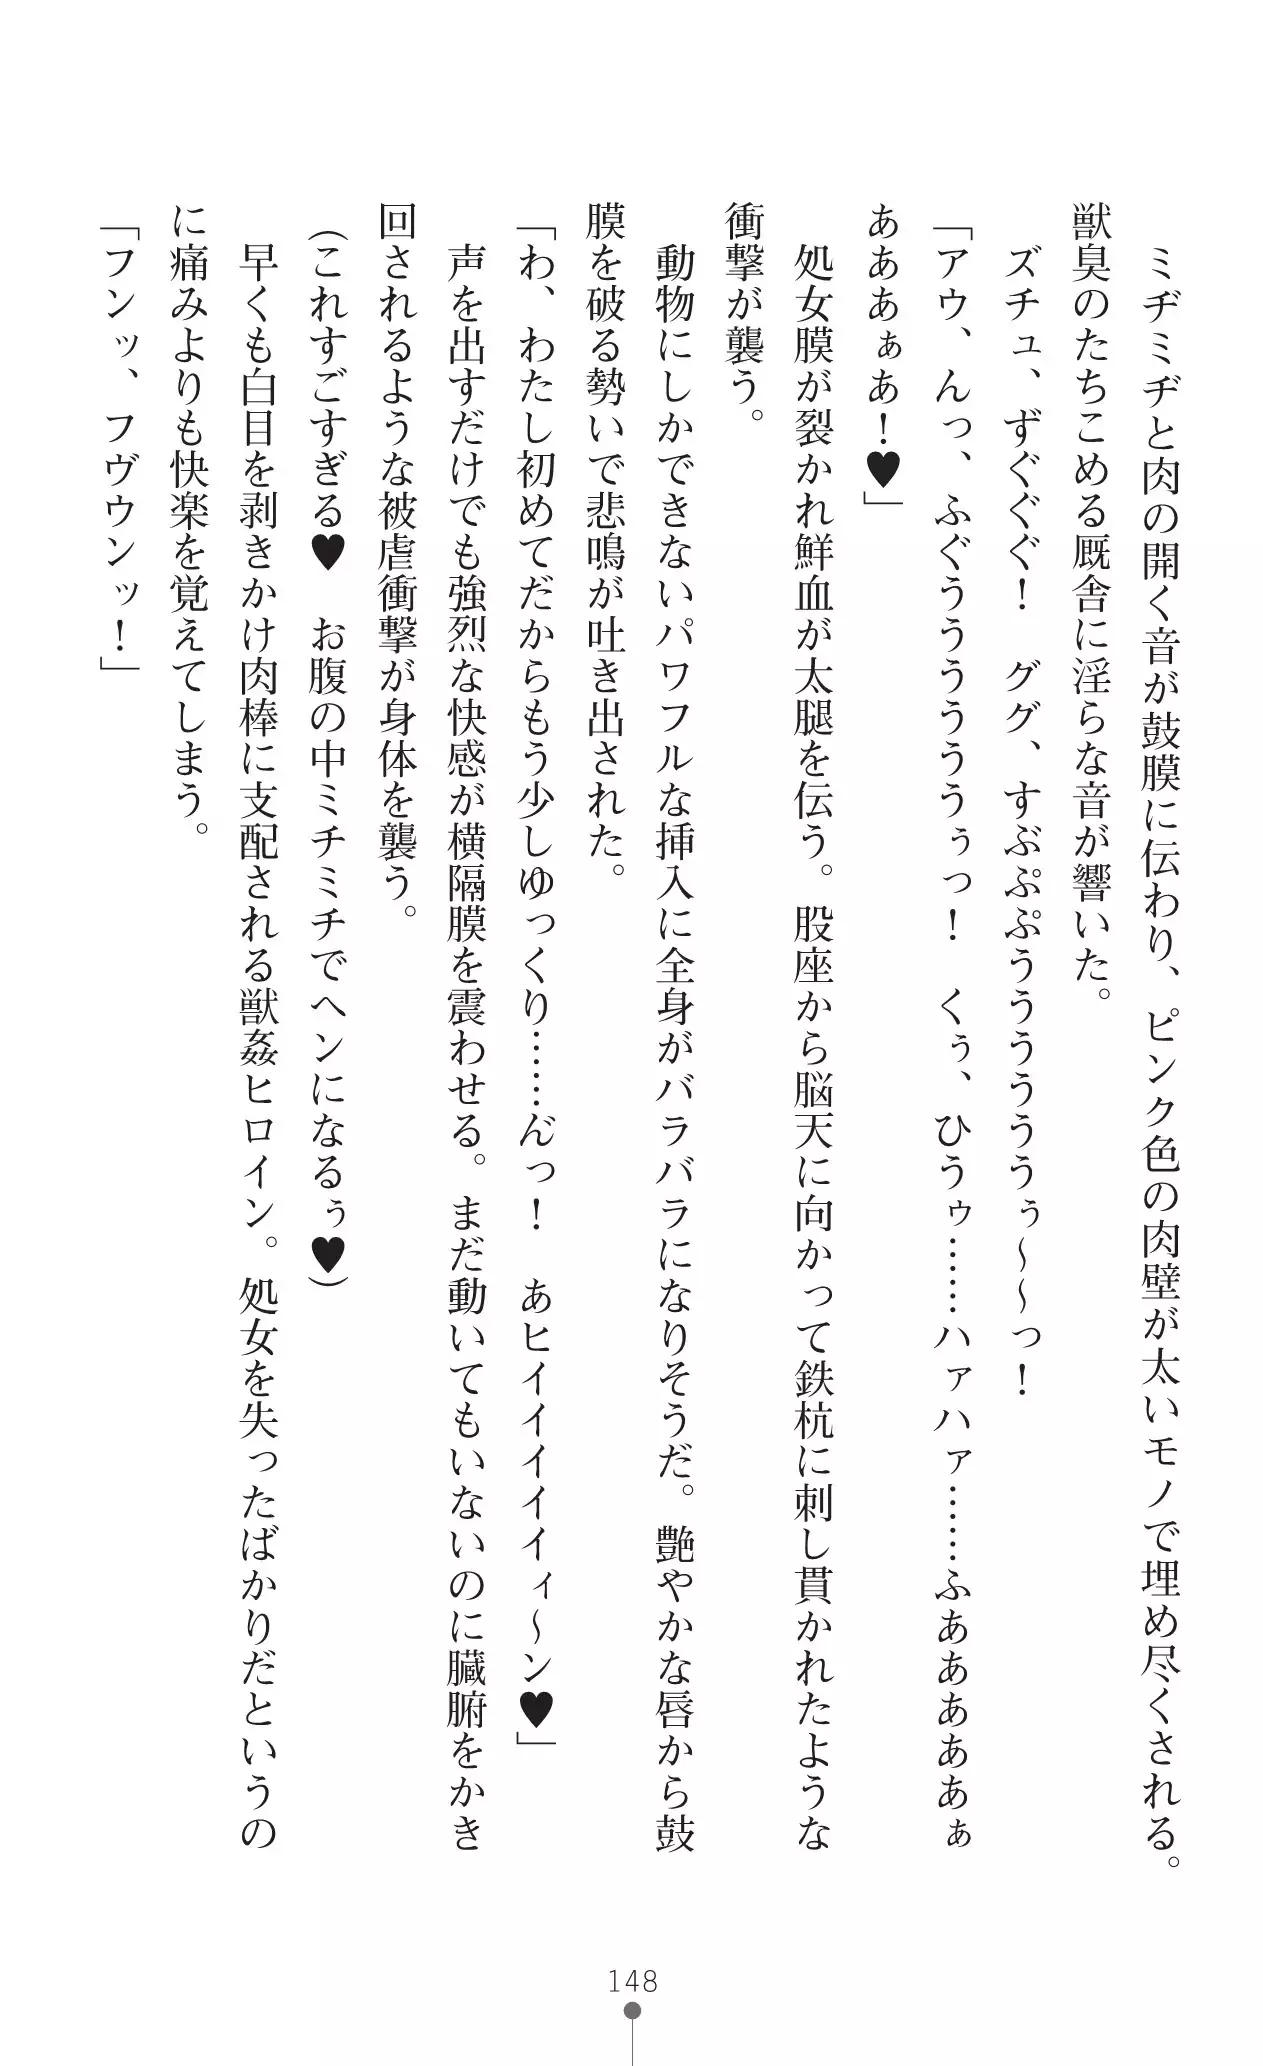 ミヂミヂと肉の開く音が鼓膜に伝わり、ピンク色の肉壁が太いモノで埋め尽くされる。
獣臭のたちこめる厩舎に淫らな音が響いた。
　ズチュ、ずぐぐぐ！　グググ、すぶぷぷうううううぅ～～っ！
「アウ、んっ、ふぐうううううぅっ！　くぅ、ひうゥ……ハァハァ……ふあああああぁ
あああぁあ！♥」
　処女膜が裂かれ鮮血が太腿を伝う。股座から脳天に向かって鉄杭に刺し貫かれたような
衝撃が襲う。
　動物にしかできないパワフルな挿入に全身がバラバラになりそうだ。艶やかな唇から鼓
膜を破る勢いで悲鳴が吐き出された。
「わ、わたし初めてだからもう少しゆっくり……ん゛っ！　あヒイイイイィ～ン♥」
　声を出すだけでも強烈な快感が横隔膜を震わせる。まだ動いてもいないのに臓腑をかき
回されるような被虐衝撃が身体を襲う。
（これすごすぎる♥　お腹の中ミチミチでヘンになるぅ♥）
　早くも白目を剥きかけ肉棒に支配される獣姦ヒロイン。処女を失ったばかりだというの
に痛みよりも快楽を覚えてしまう。
「フンッ、フヴウンッ！」
148